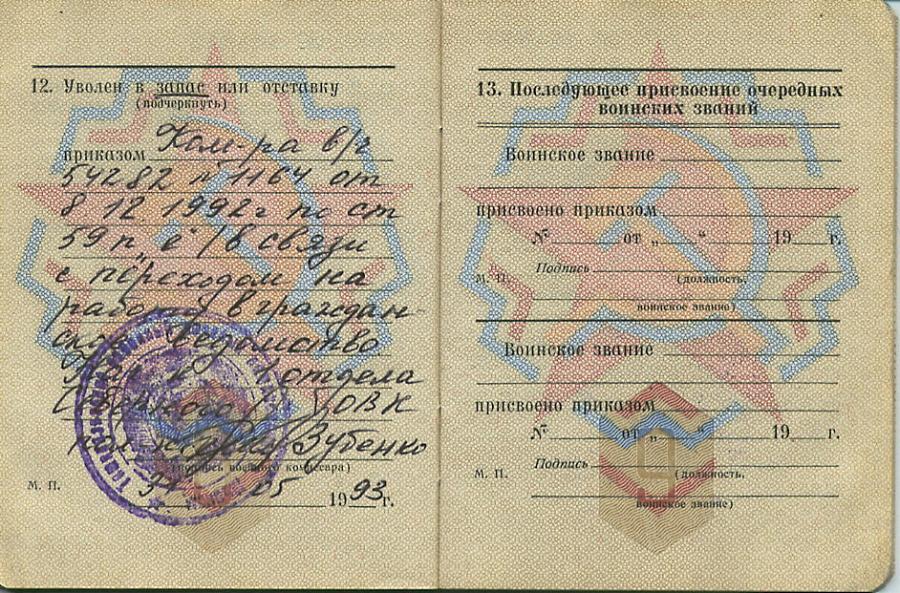 12. Уволен в запас или отставку
(подчеркнуть)
приказом Ком-ра в/ч
54282 № 1164 от
8.12.1992 г по ст
59 п "е" /в связи
с переходом на
работу в граждан-
ское ведомство
1 отдела
ОВК
Зубенко
(подпись военного комиссара)
М. П.
05 1993 г.
13. Последующее присвоение очередных
воинских званий
Воинское звание
присвоено приказом
№ от „ “ 19 г.
Подпись
М. П. (должность,
воинское звание)
Воинское звание
присвоено приказом
№ от „ “ 19 г.
Подпись
М. П. (должность,
воинское звание)